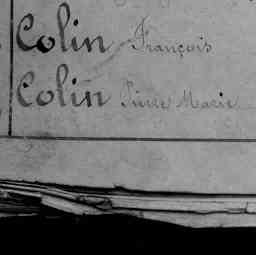 Colin François
Colin Pierre Marie